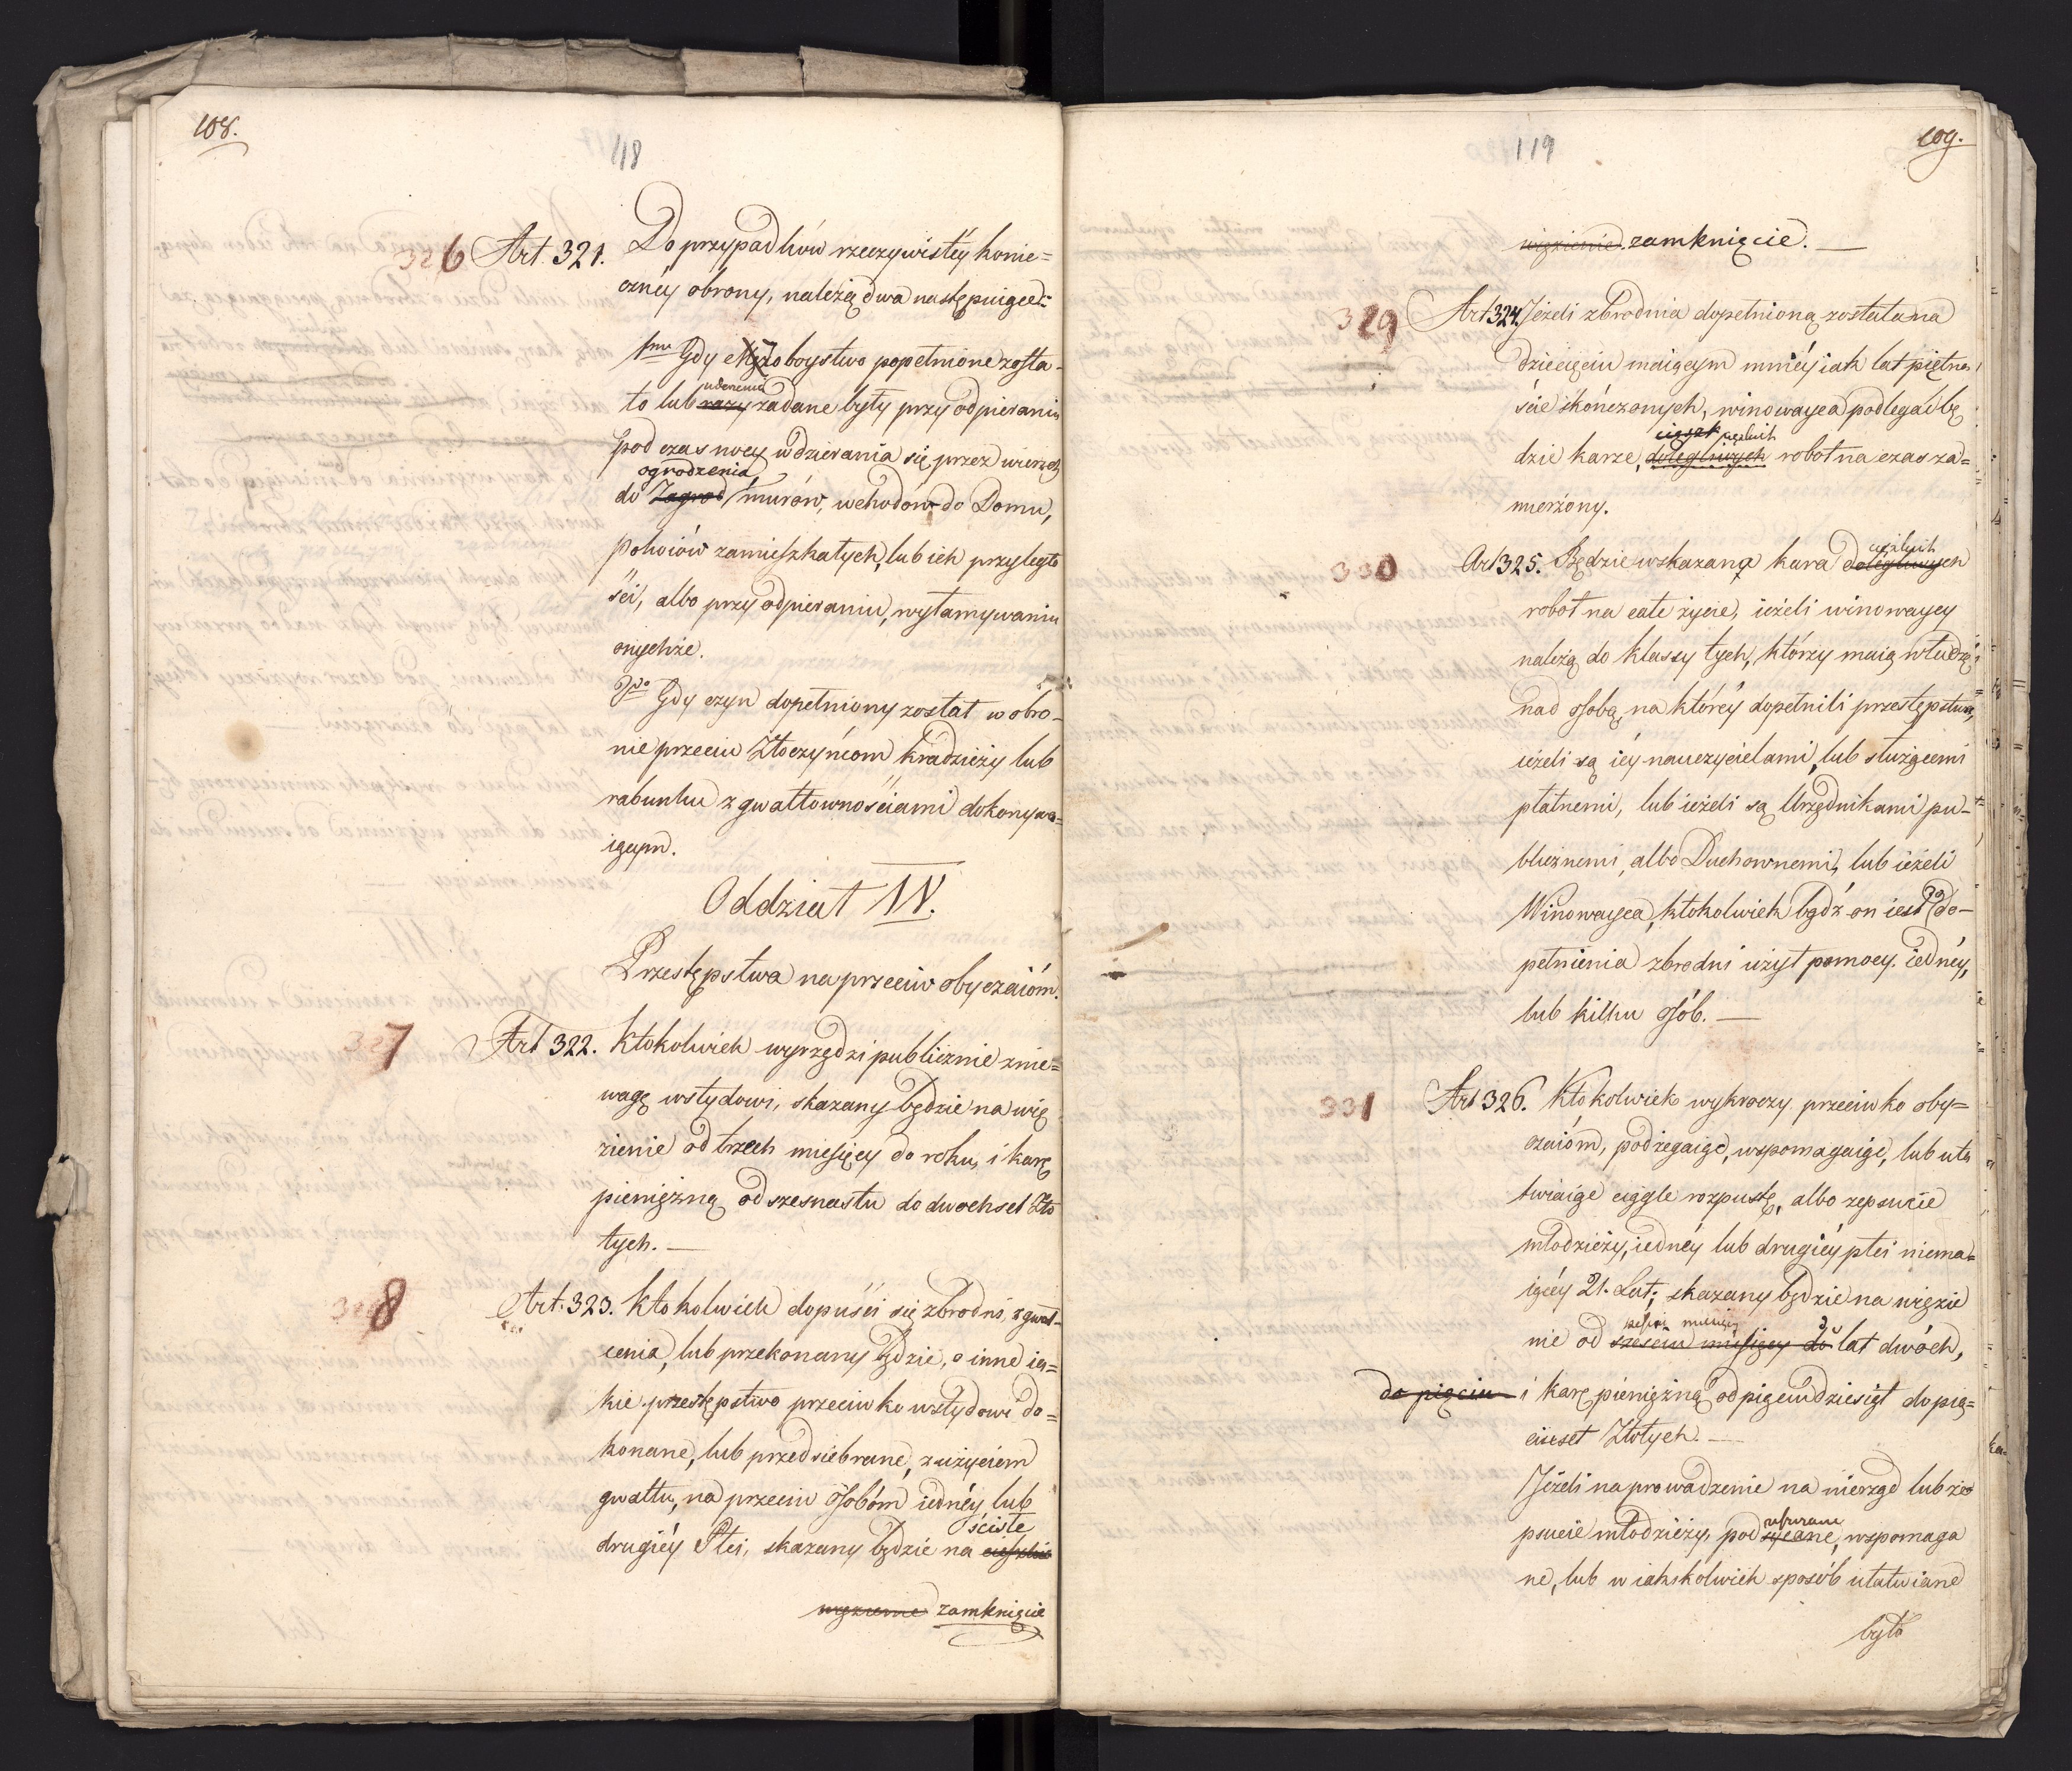 108.
118
326 Art. 321. Do przypadków rzeczywistéy konie=
cznéy obrony, należą dwa następuiące:
1mo Gdy Mężoboystwo popełnione zosta-
ło lub razy uderzenia zadane były przy odpieraniu
podczas nocy wdzierania się przez wierzch
ogrodzenia
do Zagrod murów, wchodow do Domu,
pokoiów zamieszkałych, lub ich przyległo
ści, albo przy odpieraniu, wyłamywaniu
onychże.
2do Gdy czyn dopełniony został w obro-
nie przeciw Złoczyńcom kradzieży lub
rabunku z gwałtownościami dokonywa=
iącym.
Oddział IV.
Przestępstwa naprzeciw obyczaióm.
327 Art 322. Ktokolwiek wyrządzi publicznie znie=
wagę wstydowi, skazany będzie na wię
zienie od trzech miesięcy do roku, i karę
pieniężną od szesnastu do dwochset Zło
tych. —
328 Art. 323. Ktokolwiek dopuści się zbrodni, zgwał-
cenia, lub przekonany będzie, o inne ia=
kie przestępstwo przeciwko wstydowi do=
konane, lub przedsiebrane, z użyciém
gwałtu, na przeciw osobóm iednéy lub
ściste
drugiéy Płci, skazany będzie na cięszkie
więzienie zamknięcie
119
109.
więzienie. zamknięcie. —
329 Art 324. Jeżeli zbrodnia dopełnioną została na
dziecięciu maiącym mniéy iak lat piętna
ście skończonych, winowayca podlegać bę
cięszk ciężkich
dzie karze, dolegliwych robot na czas za=
mierzony.
330 Art 325. Będzie wskazaną kara dolegliwych ciężkich
robot na całe życie, ieżeli winowaycy
należą do klassy tych, którzy maią władzę
nad osobą, na któréy dopełnili przestępstwa,
ieżeli są iéy nauczycielami, lub służącemi
płatnemi, lub ieżeli są Urzędnikami pu-
blicznemi, albo Duchownemi, lub ieżeli
Winowayca, ktokolwiek bądź on iest do do-
pełnienia zbrodni użył pomocy iednéy,
lub kilku osób. —
331 Art 326. Ktokolwiek wykroczy przeciwko oby=
czaióm, podżegaiąc, wspomagaiąc, lub uła
twiaiąc ciągle rozpustę, albo zepsucie
młodzieży, iednéy lub drugiéy płci niema=
iącéy 21. Lat; skazany będzie na więzie
nie od sześciu miesięcy do lat dwóch,
do pięciu i karę pieniężną od pięciudziesiąt do pię=
ciuset Złotych. —
Jeżeli naprowadzenie na nierząd lub ze
psucie młodzieży, podsycane, wspomaga
ne, lub w iakikolwiek sposób ułatwiane
było